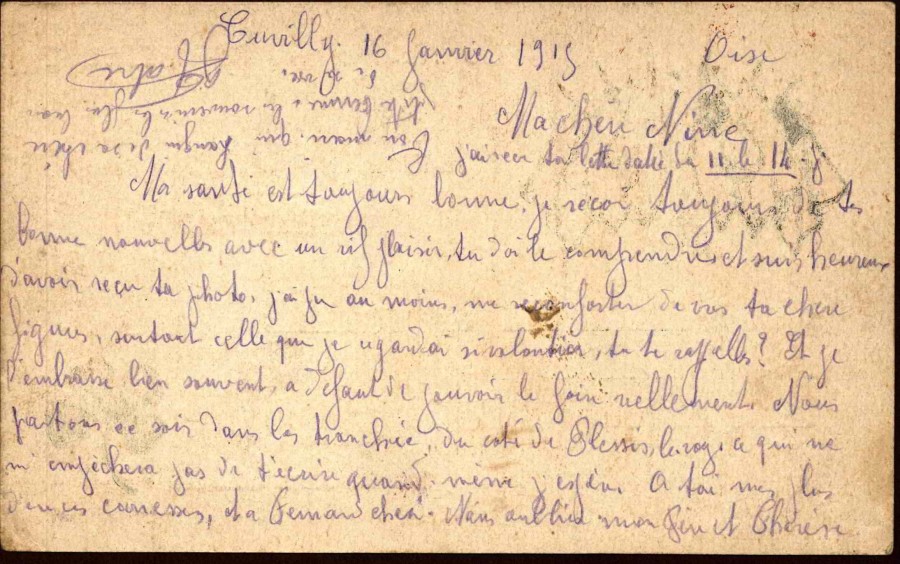 Cuvilly 16 Janvier 1915 Oise
Ma chère Ninie
j'ai recu ta lette datée du 11 le 14 j
Ma santé est toujours bonne, je recoi toujours de tes
bonne nouvelles avec un vif plaisir, tu doi le comprendre, et suis heureux
d'avoir reçu ta photo, j'ai pu au moins, me reconforter de vos ta chère
figure, surtout celle que je regardai si volontier, tu te rappelles? Et je
l'embrasse bien souvent, a défaut de pouvoir le faire réellement. Nous
partons ce soir dans les tranchée, du coté de Plessis, le roy, ce qui ne
m'empêchera pas de t'écrire quand même j'espère. A toi mes plus
douces caresses, et a Fernand cheri. Nous oublie mon Père et Thérèse
Ton mari qui pense de sa chère
petite femme a les souvenirs les plus
de sa vie.